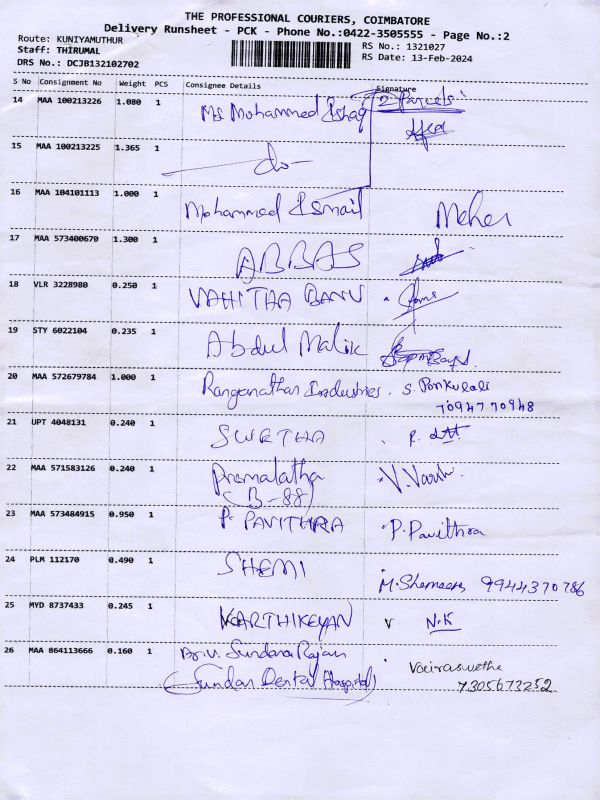 THE PROFESSIONAL COURIERS, COIMBATORE
Delivery Runsheet - PCK - Phone No.:0422-3505555 - Page No.:2
Route: KUNIYAMUTHUR
Staff: THIRUMAL
DRS No.: DCJB132102702
RS No.: 1321027
RS Date: 13-Feb-2024
S No Consignment No Weight PCS Consignee Details Signature
14 MAA 100213226 1.080 1 Mohammed Ishaq 2 Parcels
15 MAA 100213225 1.365 1 -do-
16 MAA 104101113 1.000 1 Mohammed Ismail Meher
17 MAA 573400670 1.300 1 ABBAS
18 VLR 3228980 0.250 1 VAHITHA BANU
19 STY 6022104 0.235 1 Abdul Malik
20 MAA 572679784 1.000 1 Ranganathan Industries
7094770948
21 UPT 4048131 0.240 1 SWETHA
22 MAA 571583126 0.240 1 Premalatha
(B-88)
23 MAA 573484915 0.950 1 P. PAVITHRA P. Pavithra
24 PLM 112170 0.490 1 SHEMI
M. Shameera 9944370786
25 MYD 8737433 0.245 1 KARTHIKEYAN N.K
26 MAA 864113666 0.160 1 Sundara Rajan
(Sundar Dental Hospital)
7305673252